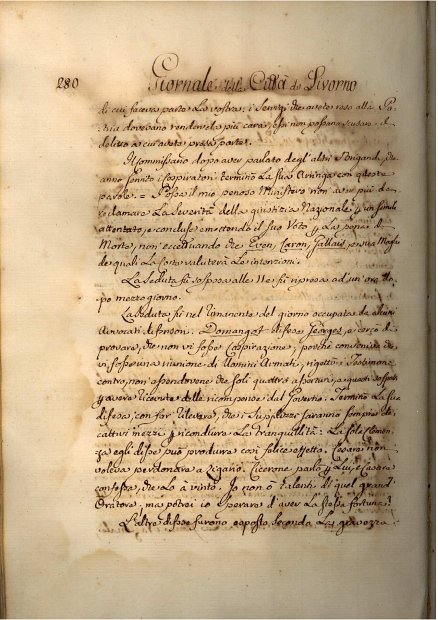 280 Giornale della Città di Livorno
di cui faceva parte. La vostra, i servizj che avete reso alla Pa-
tria dovevano renderVela più cara, essi non possono scusare il
delitto a cui avete preso parte.
Il Commissario dopo aver parlato degl'altri Briganti, che
anno servito i cospiratori terminò La sua Aringa con queste
parole = Possa il mio penoso Ministero non aver più da
reclamare La Severità della giustizia Nazionale p un simile
attentato, e concluse emettendo il suo Voto p La pena di
Morte, non eccettuando che Even, Caron, Gallais, e sua Moglie
de quali La Corte valuterà Le intenzioni.
La Seduta fù sospesa alle 11 e fù ripresa ad un'ora do-
po mezzo giorno.
La Seduta fù nel rimanente del giorno occupata da alcuni
Avvocati difensori. Domanget difese Georges, e cercò di
provare, che non vi fosse Cospirazione, perchè conveniva che
vi fosse una riunione di Uomini Armati, rigettò i Testimonj
contro, non essendovene che soli quattro
p avere ricevute delle ricompense dal Governo. Terminò La sua
difesa con far rilevare, che i Supplizzi saranno sempre de
cattivi mezzi p ricondurre La tranquillità: La sola Clemen-
za egli disse può produrre così felice effetto. Cesare non
voleva perdonare a Ligario. Cicerone parlò p Lui, e Cesare
confessa, che Lo à vinto. Io non ò i talenti di quel grand'
Oratore, ma potrei io sperare d'aver La stessa fortuna?
L'altre difese furono opposte secondo La gravezza